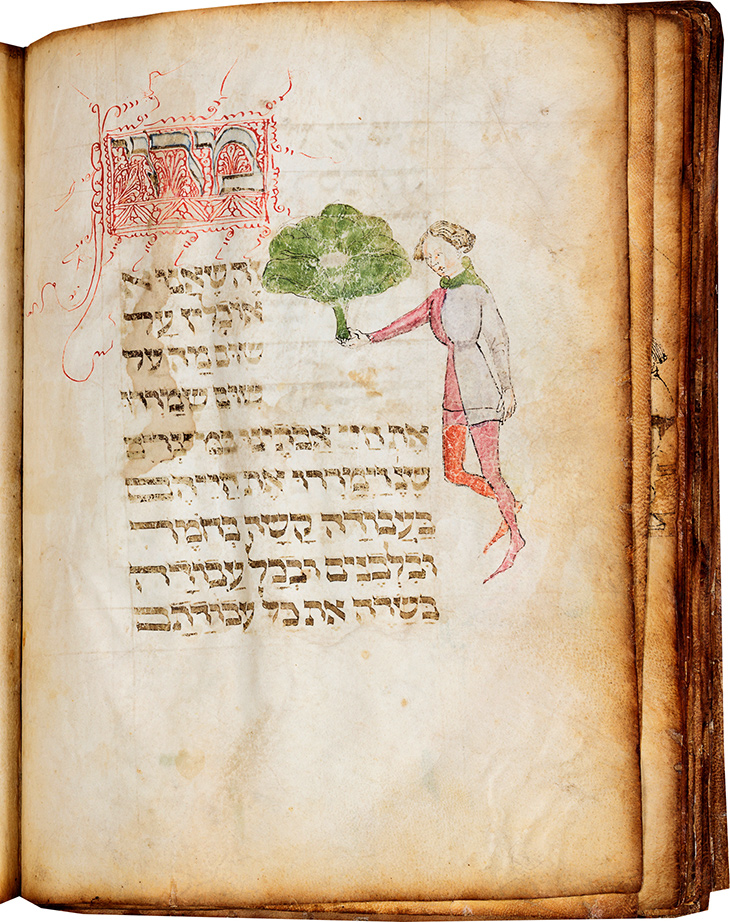 מרור
זה שאנו א
אוכלין על
שום מה על
שום שמררו
את חיי אבתינו במצרים
שנ וימררו את חייהם
בעבודה קשה בחומר
ובלבנים ובכל עבודה
בשדה את כל עבודתם